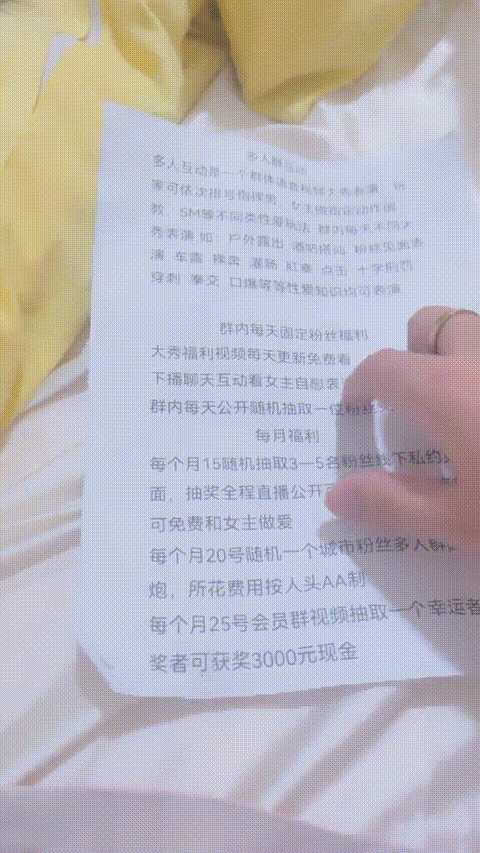 多人群互动
多人互动是一个群体语音视频大秀表演 玩
家可依次排号指挥男 女主做指定动作调
教 SM等不同类性爱玩法 群内每天不同大
秀表演 如 户外露出 酒吧搭讪 粉丝见面表
演 车震 裸奔 灌肠 肛塞 点击 十字刑罚
穿刺 拳交 口爆等等性爱知识均可表演
群内每天固定粉丝福利
大秀福利视频每天更新免费看
下播聊天互动看女主自慰
群内每天公开随机抽取一位粉丝
每月福利
每个月15随机抽取3—5名粉丝线下私约
面，抽奖全程直播公开
可免费和女主做爱
每个月20号随机一个城市粉丝多人群
炮，所花费用按人头AA制
每个月25号会员群视频抽取一个幸运者
奖者可获奖3000元现金